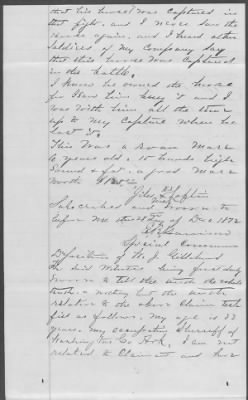 that his horse was captured in
the fight. and I never saw the
horse again. and I heard other
Soldiers of My Company Say
that this horse was Captured
in the battle.
I know he owned the horse
for I saw him buy it and I
was With him all the time
up to My Capture when he
lost it.
This Was a roan Mare
6 years old. 15 hands high
Sound & fat. a good Mare
Worth
his
mark
Subscribed and sworn to
before Me the day of Dec 1872
Special Commr
Deposition of W. J.
The said Witness being first duly
sworn to tell the truth the whole
truth & nothing but the truth
relative to the above Claim testi
fied as follows. My age is 33
years. my occupation Sherriff of
Washington Co Ark. I am not
related to Claimant and have